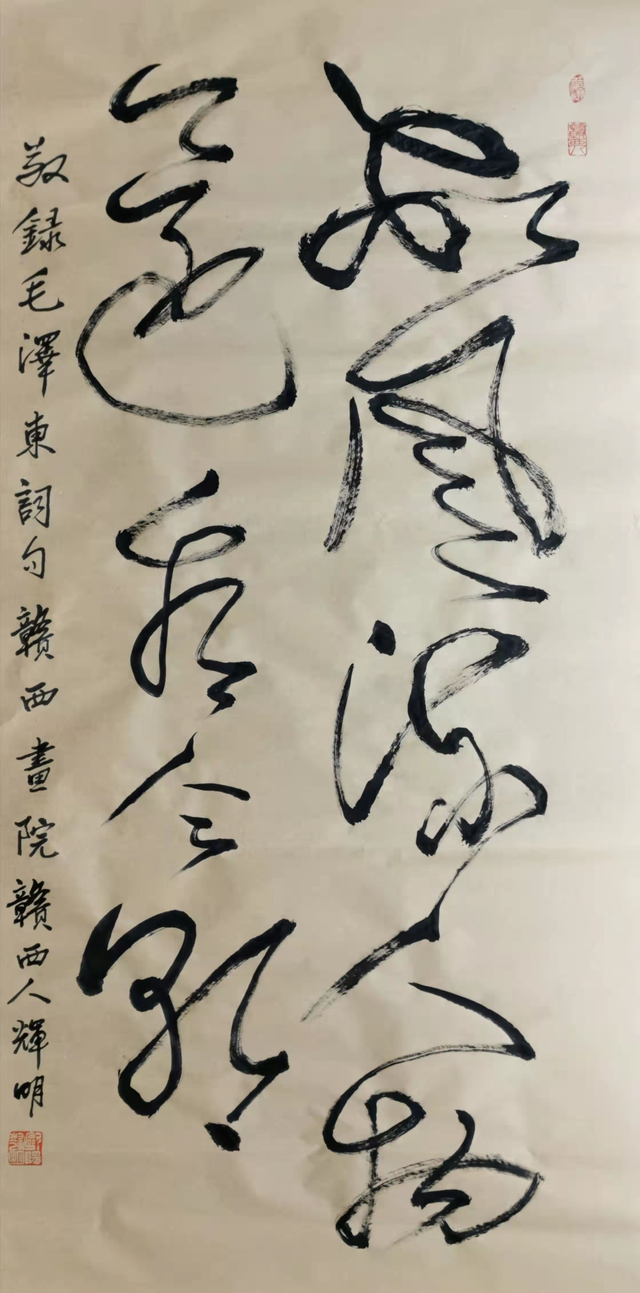 數風流人物
還看今朝
敬録毛澤東詞句贛西畫院贛西人輝明